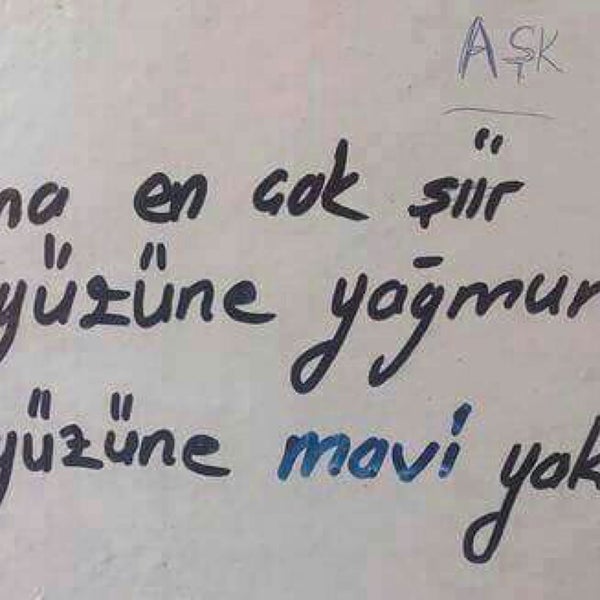 AŞK
na en cok şiir
yüzüne yağmur
yüzüne mavi yak